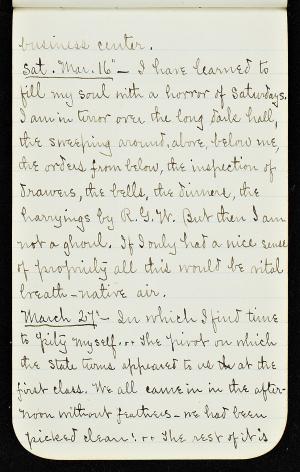 business center.
Sat. Mar. 16" – I have learned to
fill my soul with a horror of Saturdays.
I am in terror over the long dark hall,
the sweeping around, above, below me,
the orders from below, the inspection of
drawers, the bells, the dinners, the
harryings by R.G.W. But then I am
not a ghoul. If I only had a nice sense
of propriety all this would be vital
breath – native air.
March 27" – In which I find time
to pity myself... The pivot on which
the State turns appeared to us at the
first class. We all came in in the after-
noon without feathers – we had been
picked clean! .. The rest of it is